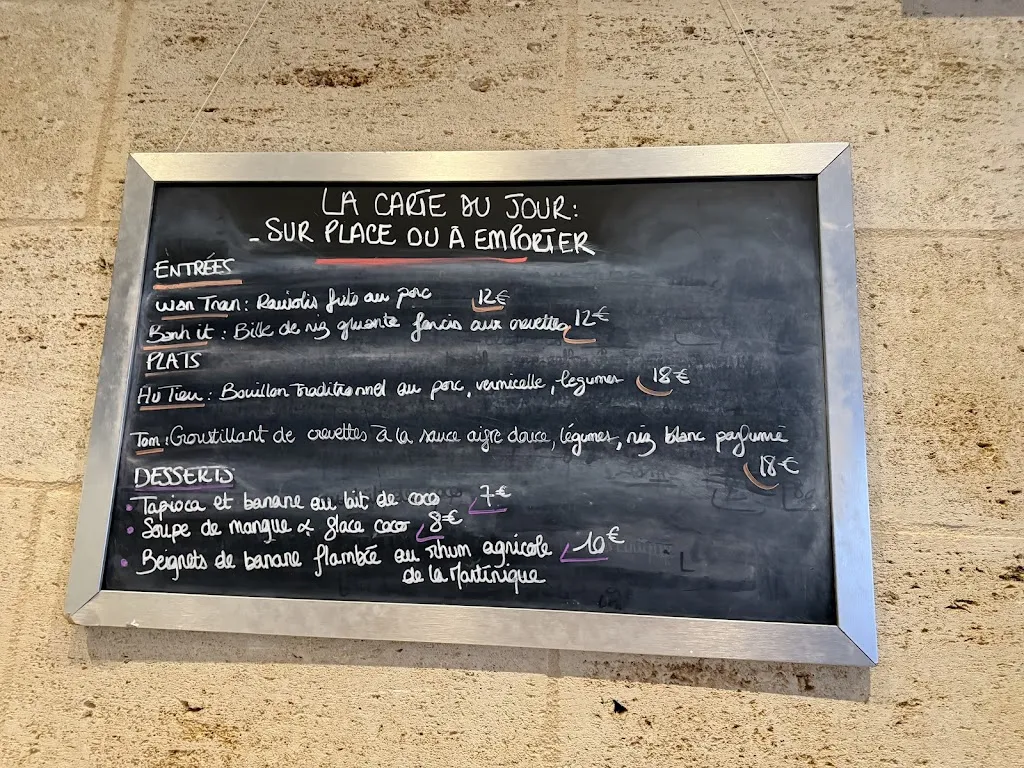 LA CARTE DU JOUR:
- SUR PLACE OU À EMPORTER
ENTRÉES
Wan Tran : Raviolis frits au porc 12€
Banh it : Bille de riz gluante farcis aux crevettes 12€
PLATS
Hu Tieu : Bouillon Traditionnel au porc, vermicelle, légumes 18€
Tom : Croustillant de crevettes à la sauce aigre douce, légumes, riz blanc parfumé
18€
DESSERTS
• Tapioca et banane au lait de coco 7€
• Soupe de mangue & glace coco 8€
• Beignets de banane flambée au rhum agricole 10€
de la Martinique